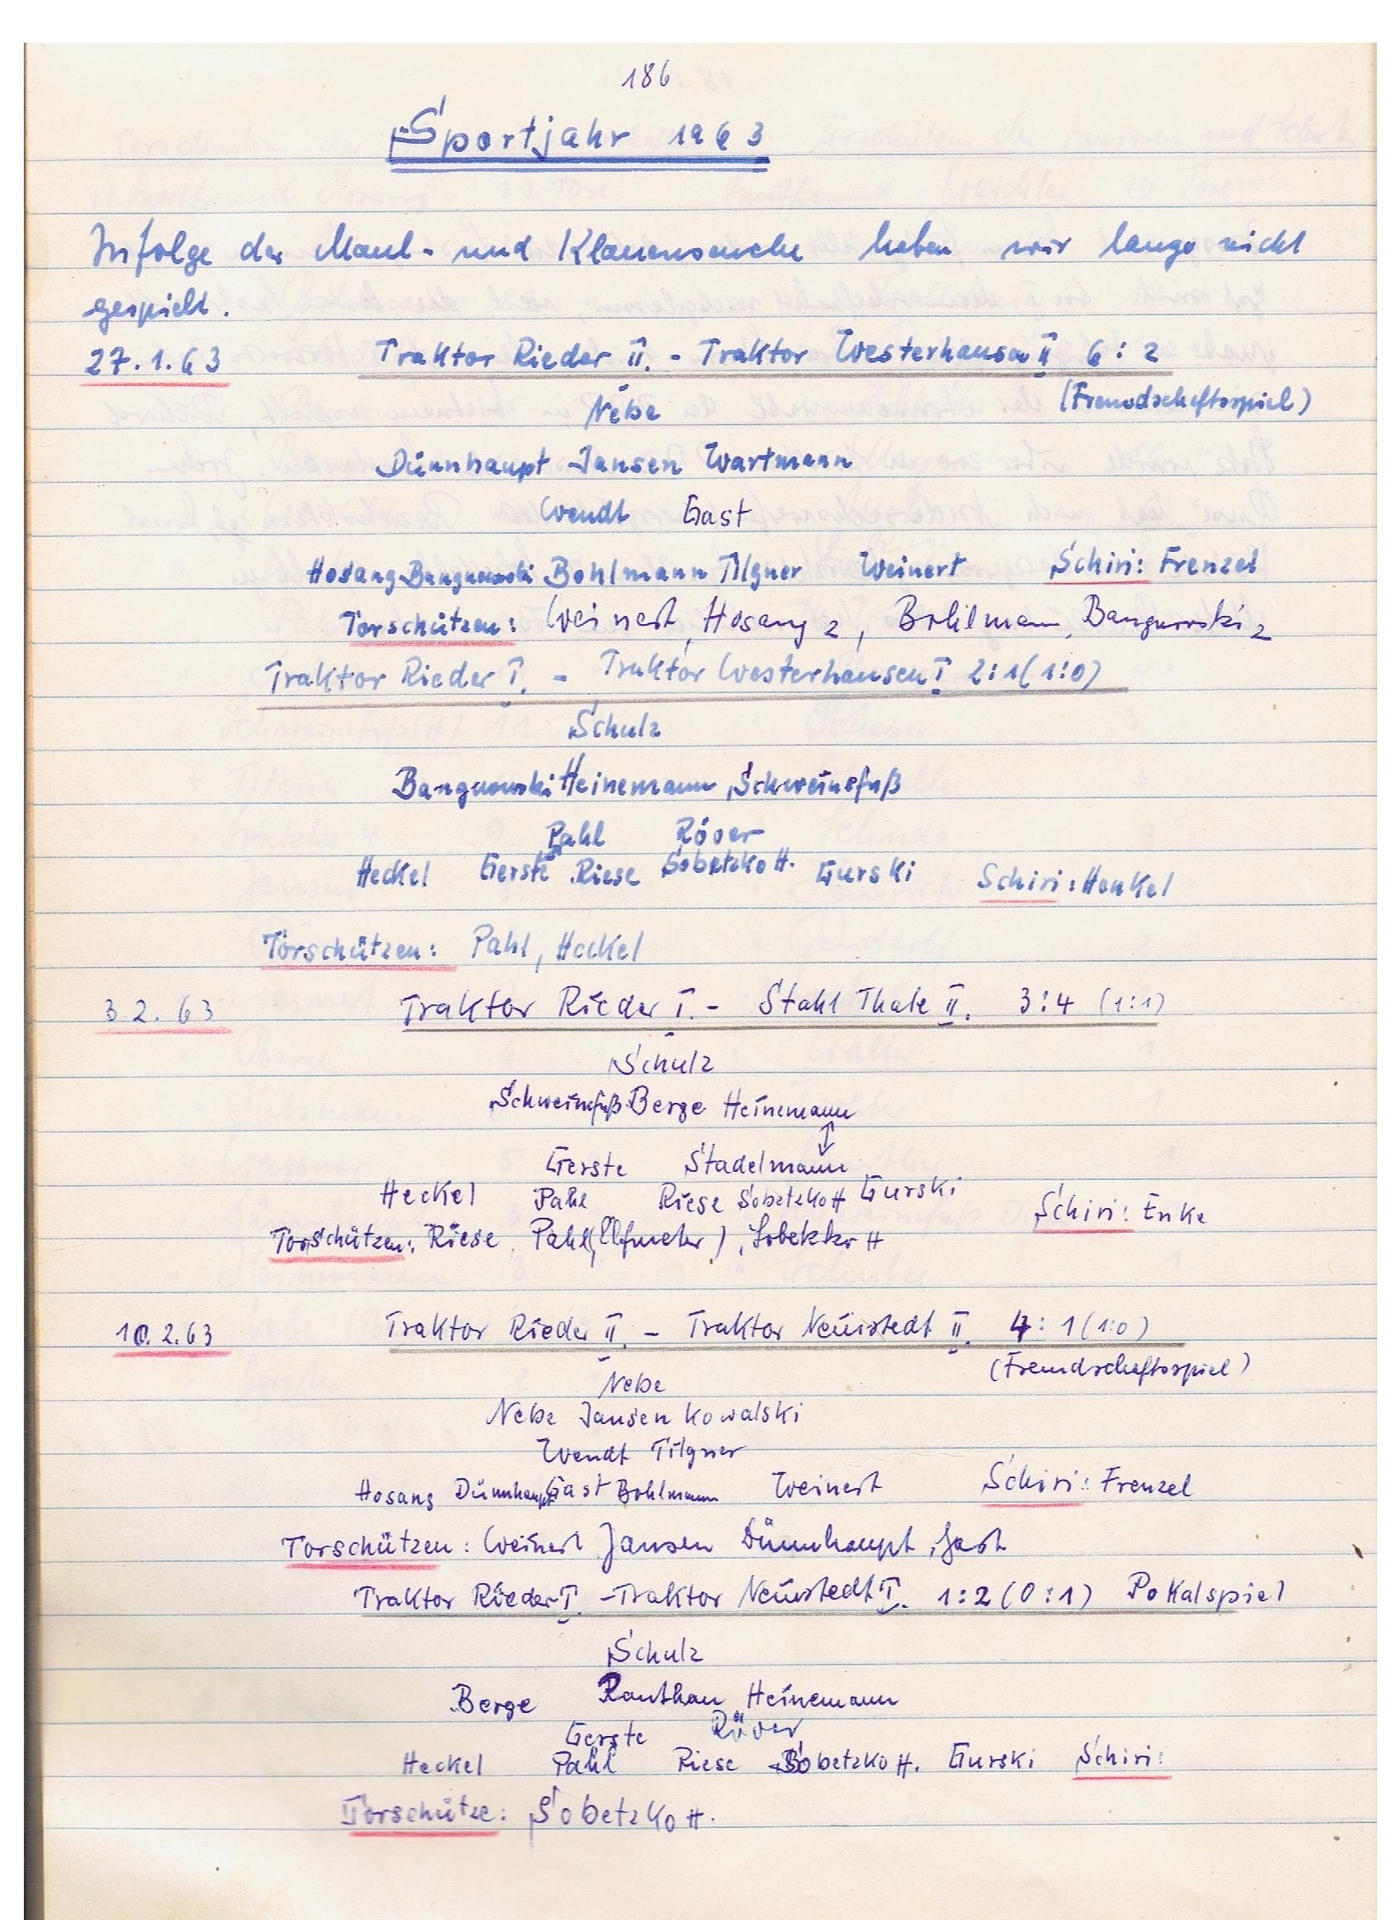 186
Sportjahr 1963
Infolge der Maul- und Klauenseuche haben wir lange nicht
gespielt.
27.1.63 Traktor Rieder II. - Traktor Westerhausen II 6:2
Nebe (Freundschaftsspiel)
Dünnhaupt Jansen Wartmann
Wendt Gast
Hosang Bangnowski Bohlmann Tilgner Weinert Schiri: Frenzel
Torschützen: Weinert, Hosang 2, Bohlmann, Bangnowski 2
Traktor Rieder I. - Traktor Westerhausen I 2:1 (1:0)
Schulz
Bangnowski Heinemann, Schweinsfuß
Pahl Röver
Heckel Gerste Riese Sobetzko H. Gurski Schiri: Henkel
Torschützen: Pahl, Heckel
3.2.63 Traktor Rieder I. - Stahl Thale II. 3:4 (1:1)
Schulz
Schweinsfuß Berge Heinemann
Gerste Stadelmann
Heckel Pahl Riese Sobetzko H Gurski Schiri: Enke
Torschützen: Riese, Pahl (Elfmeter), Sobetzko H
10.2.63 Traktor Rieder II. - Traktor Neinstedt II. 4:1 (1:0)
(Freundschaftsspiel)
Nebe
Nebe Jansen Kowalski
Wendt Tilgner
Hosang Dünnhaupt Gast Bohlmann Weinert Schiri: Frenzel
Torschützen: Weinert Jansen Dünnhaupt, Gast
Traktor Rieder I. - Traktor Neinstedt I. 1:2 (0:1) Pokalspiel
Schulz
Berge Heinemann
Gerste Röver
Heckel Pahl Riese Sobetzko H. Gurski Schiri:
Torschütze: Sobetzko H.